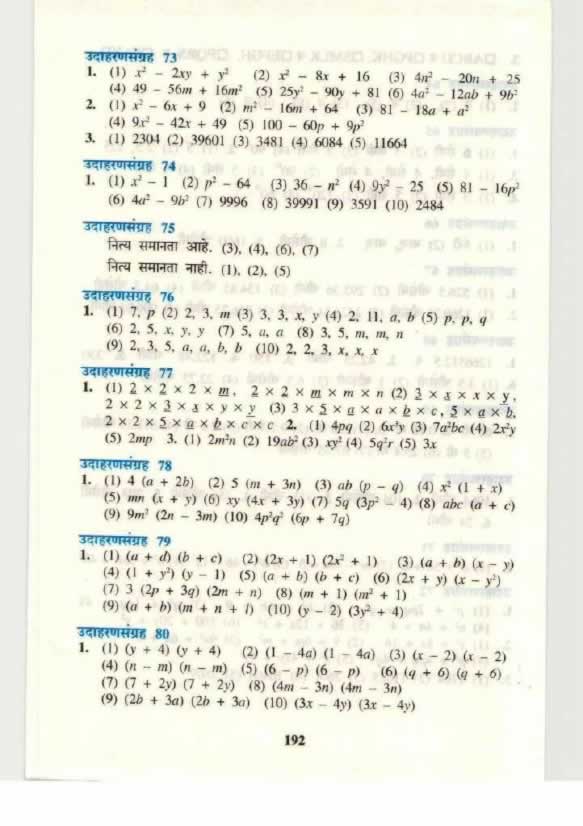 उदाहरणसंग्रह 73
1. (1) x² − 2xy + y² (2) x² − 8x + 16 (3) 4n² − 20n + 25
(4) 49 − 56m + 16m² (5) 25y² − 90y + 81 (6) 4a² − 12ab + 9b²
2. (1) x² − 6x + 9 (2) m² − 16m + 64 (3) 81 − 18a + a²
(4) 9x² − 42x + 49 (5) 100 − 60p + 9p²
3. (1) 2304 (2) 39601 (3) 3481 (4) 6084 (5) 11664
उदाहरणसंग्रह 74
1. (1) x² − 1 (2) p² − 64 (3) 36 − n² (4) 9y² − 25 (5) 81 − 16p²
(6) 4a² − 9b² (7) 9996 (8) 39991 (9) 3591 (10) 2484
उदाहरणसंग्रह 75
नित्य समानता आहे. (3), (4), (6), (7)
नित्य समानता नाही. (1), (2), (5)
उदाहरणसंग्रह 76
1. (1) 7, p (2) 2, 3, m (3) 3, 3, x, y (4) 2, 11, a, b (5) p, p, q
(6) 2, 5, x, y, y (7) 5, a, a (8) 3, 5, m, m, n
(9) 2, 3, 5, a, a, b, b (10) 2, 2, 3, x, x, x
उदाहरणसंग्रह 77
1. (1) 2 × 2 × 2 × m, 2 × 2 × m × m × n (2) 3 × x × x × y,
2 × 2 × 3 × x × y × y (3) 3 × 5 × a × a × b × c, 5 × a × b,
2 × 2 × 5 × a × b × c × c 2. (1) 4pq (2) 6x³y (3) 7a²bc (4) 2x²y
(5) 2mp 3. (1) 2m²n (2) 19ab² (3) xy² (4) 5q²r (5) 3x
उदाहरणसंग्रह 78
1. (1) 4 (a + 2b) (2) 5 (m + 3n) (3) ab (p − q) (4) x² (1 + x)
(5) mn (x + y) (6) xy (4x + 3y) (7) 5q (3p² − 4) (8) abc (a + c)
(9) 9m² (2n − 3m) (10) 4p²q² (6p + 7q)
उदाहरणसंग्रह 79
1. (1) (a + d) (b + c) (2) (2x + 1) (2x² + 1) (3) (a + b) (x − y)
(4) (1 + y²) (y − 1) (5) (a + b) (b + c) (6) (2x + y) (x − y²)
(7) 3 (2p + 3q) (2m + n) (8) (m + 1) (m² + 1)
(9) (a + b) (m + n + l) (10) (y − 2) (3y² + 4)
उदाहरणसंग्रह 80
1. (1) (y + 4) (y + 4) (2) (1 − 4a) (1 − 4a) (3) (x − 2) (x − 2)
(4) (n − m) (n − m) (5) (6 − p) (6 − p) (6) (q + 6) (q + 6)
(7) (7 + 2y) (7 + 2y) (8) (4m − 3n) (4m − 3n)
(9) (2b + 3a) (2b + 3a) (10) (3x − 4y) (3x − 4y)
192